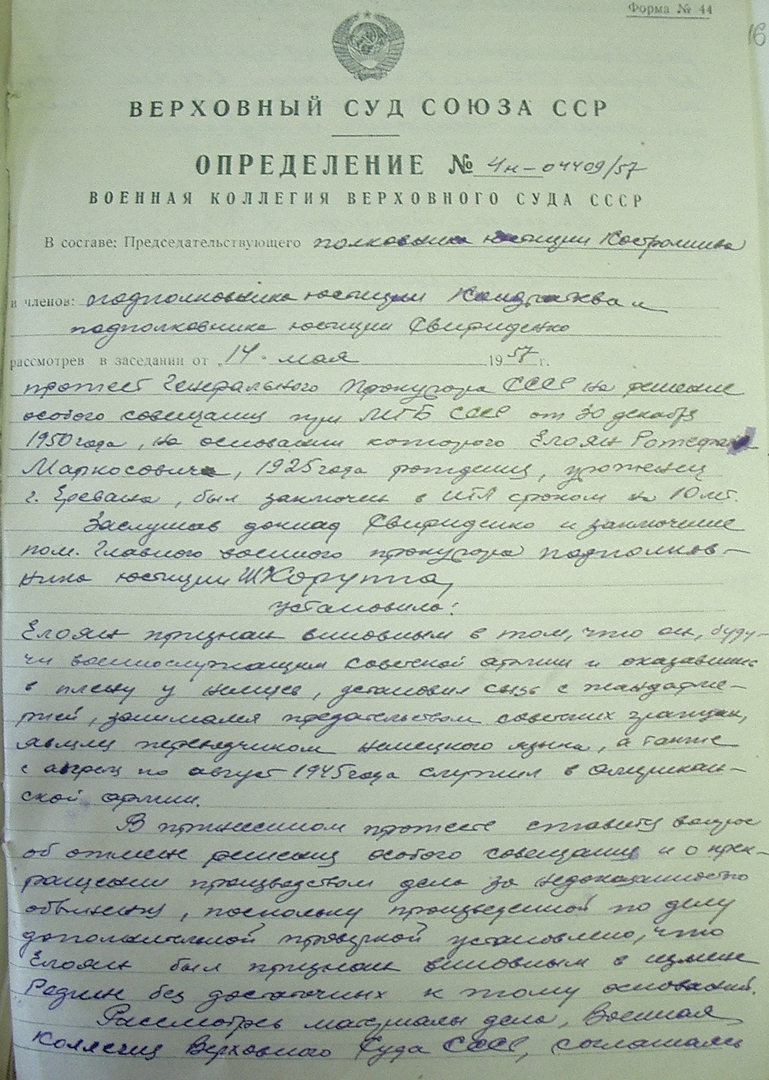 Форма № 44
16
ВЕРХОВНЫЙ СУД СОЮЗА ССР
ОПРЕДЕЛЕНИЕ № 4н-04409/57
ВОЕННАЯ КОЛЛЕГИЯ ВЕРХОВНОГО СУДА СССР
В составе: Председательствующего полковника юстиции Костромина
и членов: подполковника юстиции и
подполковника юстиции Свириденко
рассмотрев в заседании от „14" мая 1957 г.
протест Генерального Прокурора СССР на решение
особого совещания при МГБ СССР от 30 декабря
1950 года, на основании которого Елоян
Маркосович, 1925 года рождения, уроженец
г. Еревана, был заключен в ИТЛ сроком на 10 лет.
Заслушав доклад Свириденко и заключение
пом. Главного военного прокурора подполков-
ника юстиции
установила:
Елоян признан виновным в том, что он, буду-
чи военнослужащим советской армии и оказавшись
в плену у немцев, установил связь с жандарме-
рией, занимался предательством советских граждан,
являясь переводчиком немецкого языка, а также
с апреля по август 1945 года служил в американ-
ской армии.
В принесенном протесте ставится вопрос
об отмене решения особого совещания и о прек-
ращении производством дела за недоказанностью
обвинения, поскольку произведенной по делу
дополнительной проверкой установлено, что
Елоян был признан виновным в измене
Родине без достаточных к тому оснований.
Рассмотрев материалы дела, Военная
Коллегия Верховного Суда СССР, соглашаясь